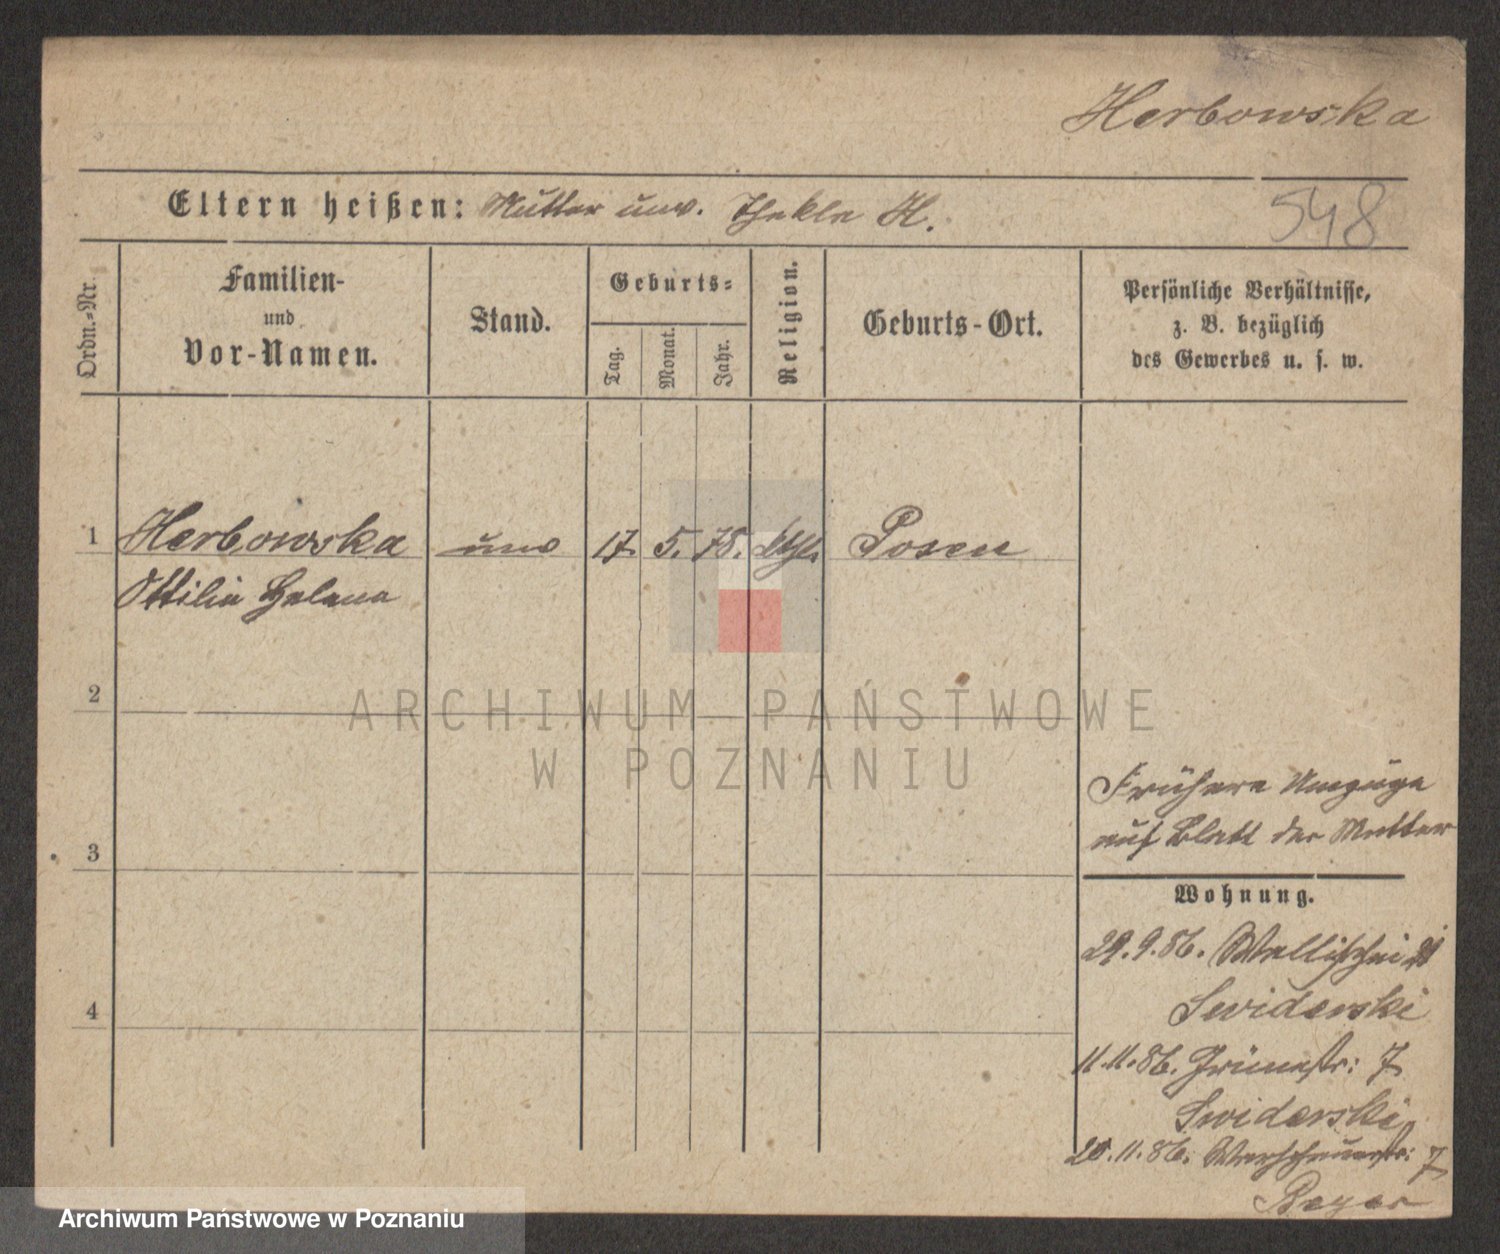 Herbowska
Eltern heißen: Mutter unv. Thekla H.
548
Ordn.-Nr.
Familien-
und
Vor-Namen.
Stand.
Geburts-
Tag.
Monat.
Jahr.
Religion.
Geburts-Ort.
Persönliche Verhältnisse,
z. B. bezüglich
des Gewerbes u. s. w.
1 Herbowska unv 17. 5. 75. kth. Posen
Ottilie Helena
2
ARCHIWUM PAŃSTWOWE
W POZNANIU
Frühere Umzüge
auf Blatt der Mutter
3
Wohnung.
29.9.86. Wallischei 21
Swiderski
4
11.11.86. Grünestr: 7
Swiderski
20.11.86. 7
Beyer
Archiwum Państwowe w Poznaniu